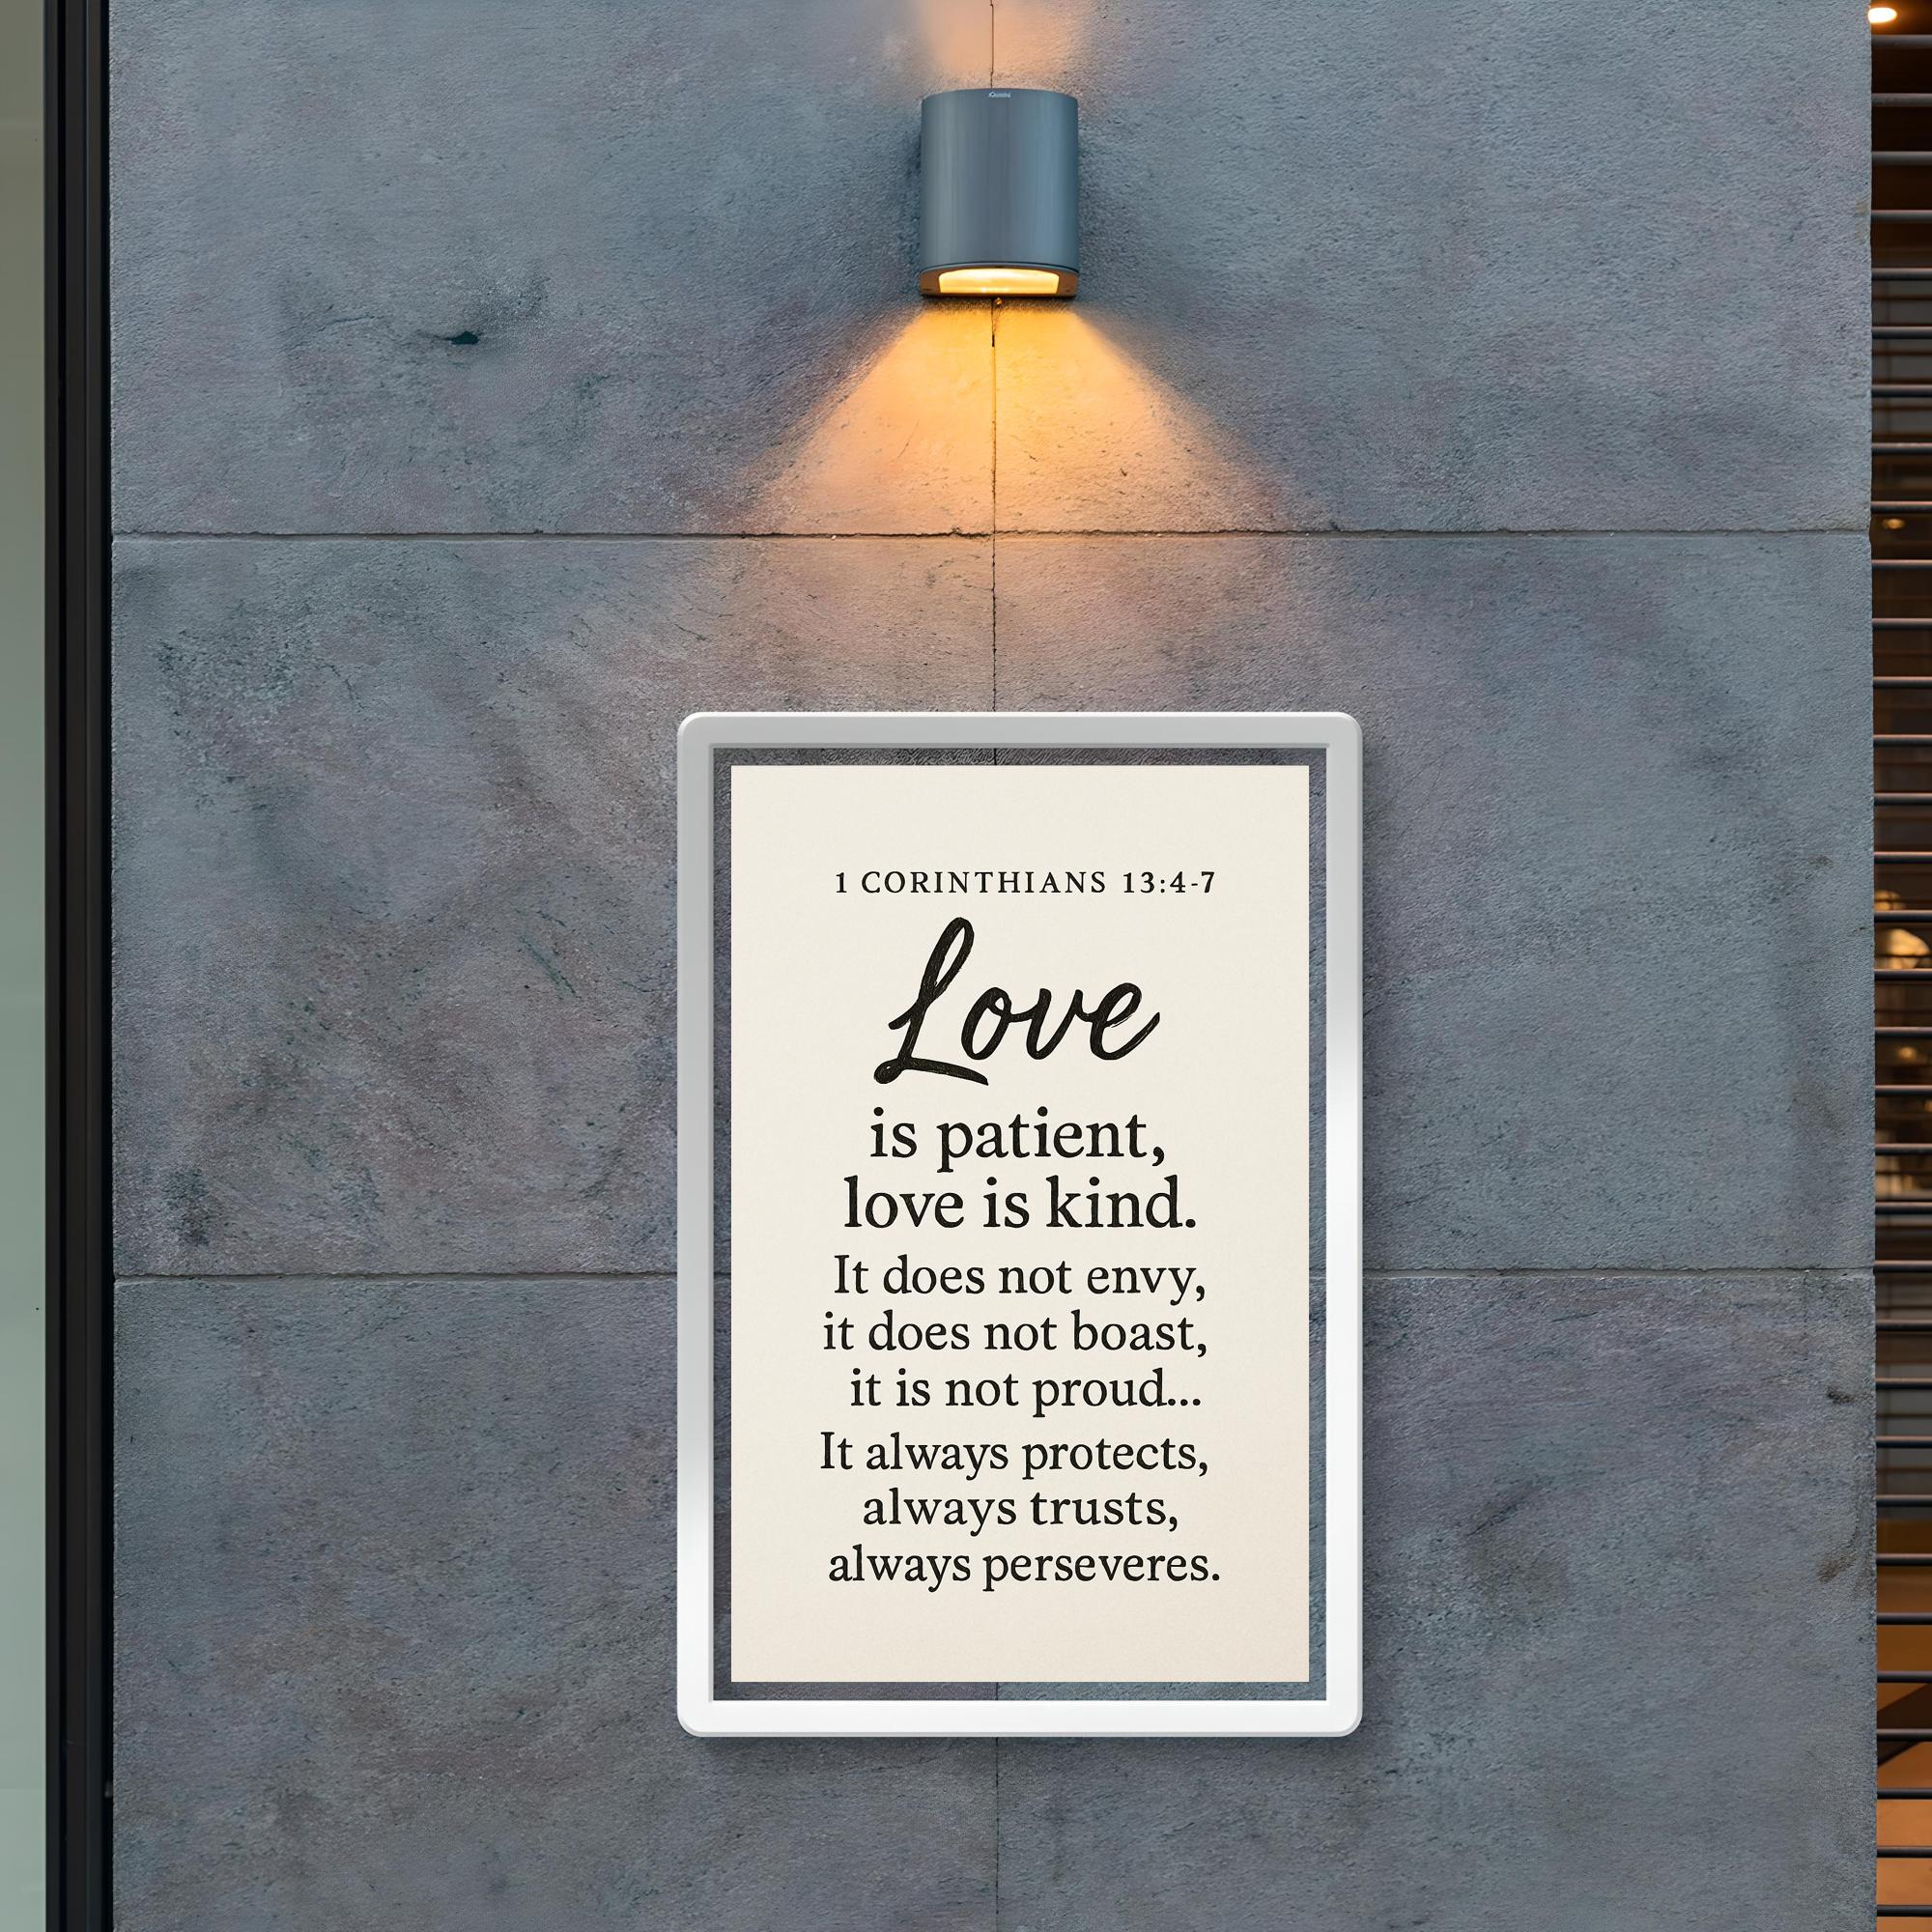 1 CORINTHIANS 13:4-7
Love
is patient,
love is kind.
It does not envy,
it does not boast,
it is not proud...
It always protects,
always trusts,
always perseveres.